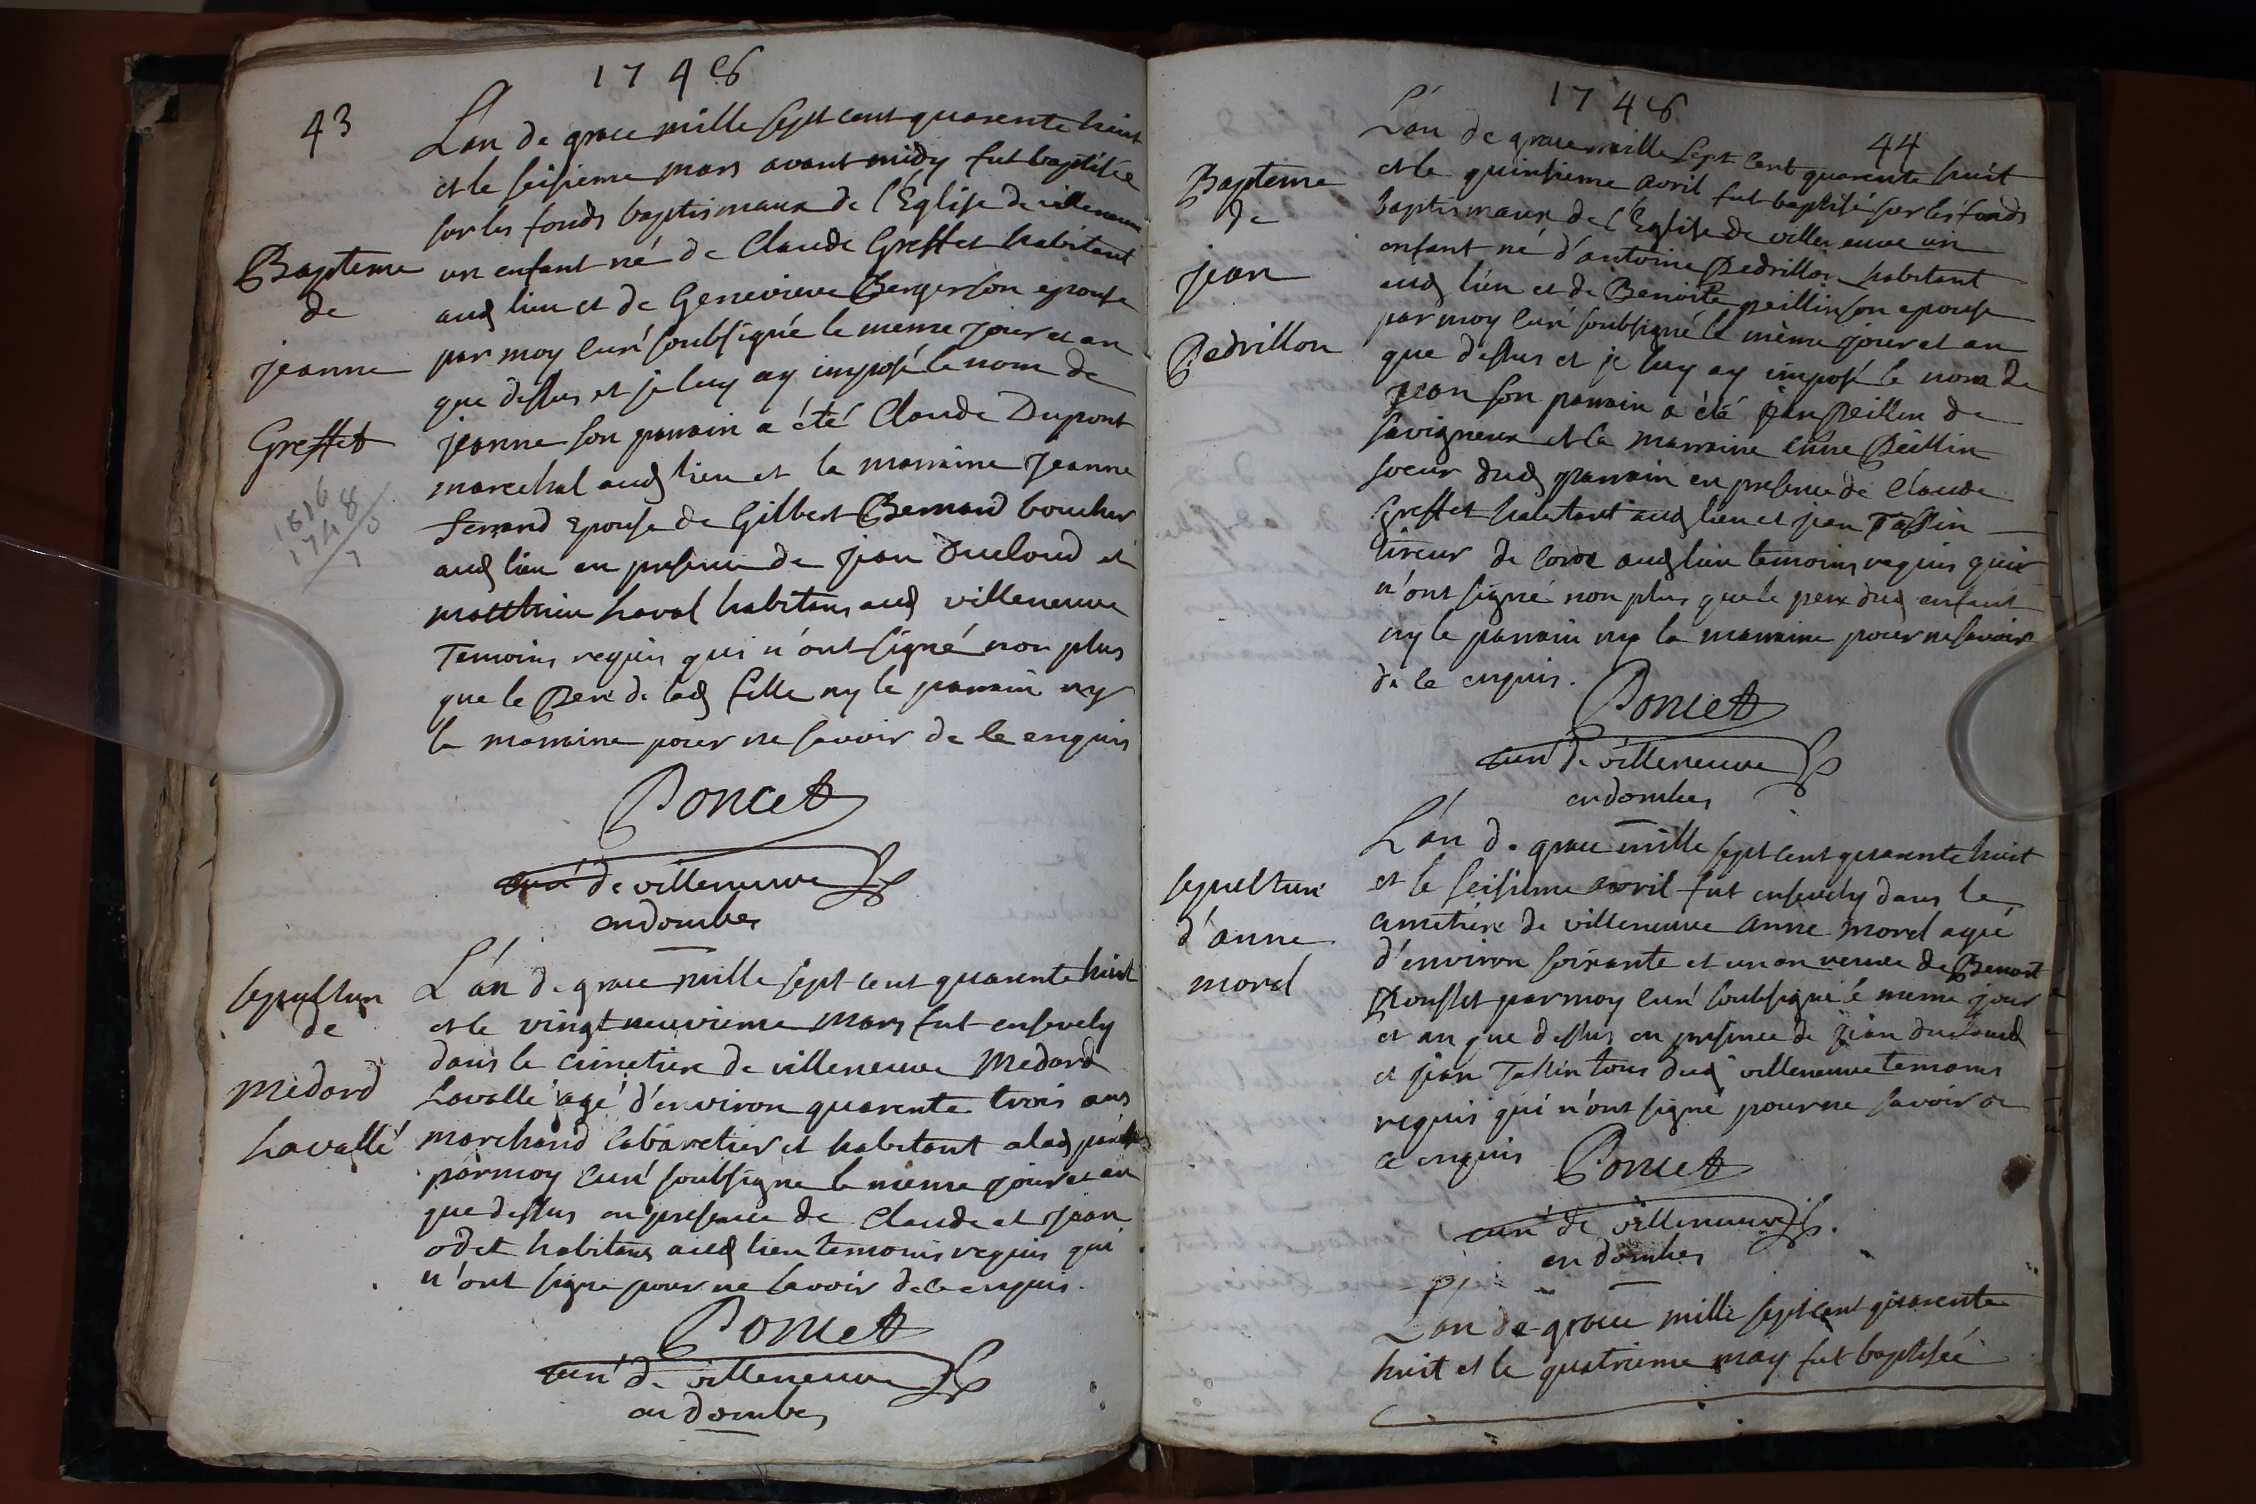 1748
43
L'an de grace mille sept cent quarente huit
et le seisieme mars avant midy fut baptisée
sur les fonds baptismaux de l'Église de villeneuve
Bapteme
de
jeanne
Greffet
un enfant né de Claude Greffet habitant
aud lieu et de Genevieve Bergerson epouse
par moy curé soubsigné le meme jour et an
que dessus et je luy ay imposé le nom de
jeanne son parrain a été Claude Dupont
marechal aud lieu et la marraine jeanne
ferrand epouse de Gilbert Bernard boucher
aud lieu en presence de jean Ducloud et
matthieu Laval habitans aud villeneuve
Temoins requis qui n'ont signé non plus
que le Pere de lad fille ny le parrain ny
la marraine pour ne savoir de ce enquis
1816
1748
Poncet
curé de villeneuve
en dombes
sepulture
de
medard
Lavallé
L'an de grace mille sept cent quarente huit
et le vingt neuvieme mars fut ensevely
dans le cimetiere de villeneuve Medard
Lavallé agé d'environ quarente trois ans
marchand cabaretier et habitant a lad
par moy curé soubsigné le meme jour et an
que dessus en presence de Claude et jean
odet habitans aud lieu temoins requis qui
n'ont signé pour ne savoir de ce enquis.
Poncet
curé de villeneuve
en dombes
1748
44
L'an de grace mille sept cent quarente huit
et le quinsieme avril fut baptisé sur les fonds
baptismaux de l'Eglise de villeneuve un
Bapteme
de
jean
Pedrillon
enfant né d'antoine Pedrillon habitant
aud lieu et de Benoite peillin son epouse
par moy curé soubsigné le même jour et an
que dessus et je luy ay imposé le nom de
jean son parrain a été jean peillin de
savigneux et la marraine Peillin
soeur dud parrain en presence de Claude
Greffet habitant aud lieu et jean Tassin
tireur de corde aud lieu temoins requis qui
n'ont signé non plus que le pere dud enfant
ny le parrain ny la marraine pour ne savoir
de ce enquis.
Poncet
curé de villeneuve
en dombes
sepulture
d'anne
morel
L'an de grace mille sept cent quarente huit
et le seisieme avril fut ensevely dans le
cimetiere de villeneuve anne morel agée
d'environ soixante et un an veuve de Benoit
Rousset par moy curé soubsigné le meme jour
et an que dessus en presence de jean ducloud
et jean Tassin tous dud villeneuve temoins
requis qui n'ont signé pour ne savoir de
ce enquis
Poncet
curé de villeneuve
en dombes
L'an de grace mille sept cent quarente
huit et le quatrieme may fut baptisée